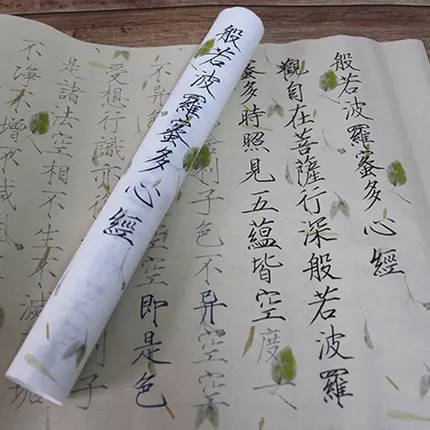 般若波羅蜜多心經
般若波羅蜜多心經
觀自在菩薩行深般若波羅
蜜多時照見五蘊皆空度
利子色不异空空
不异 空即是色
受想行識亦 子
是諸法空相不生不滅不垢
不淨不增不減